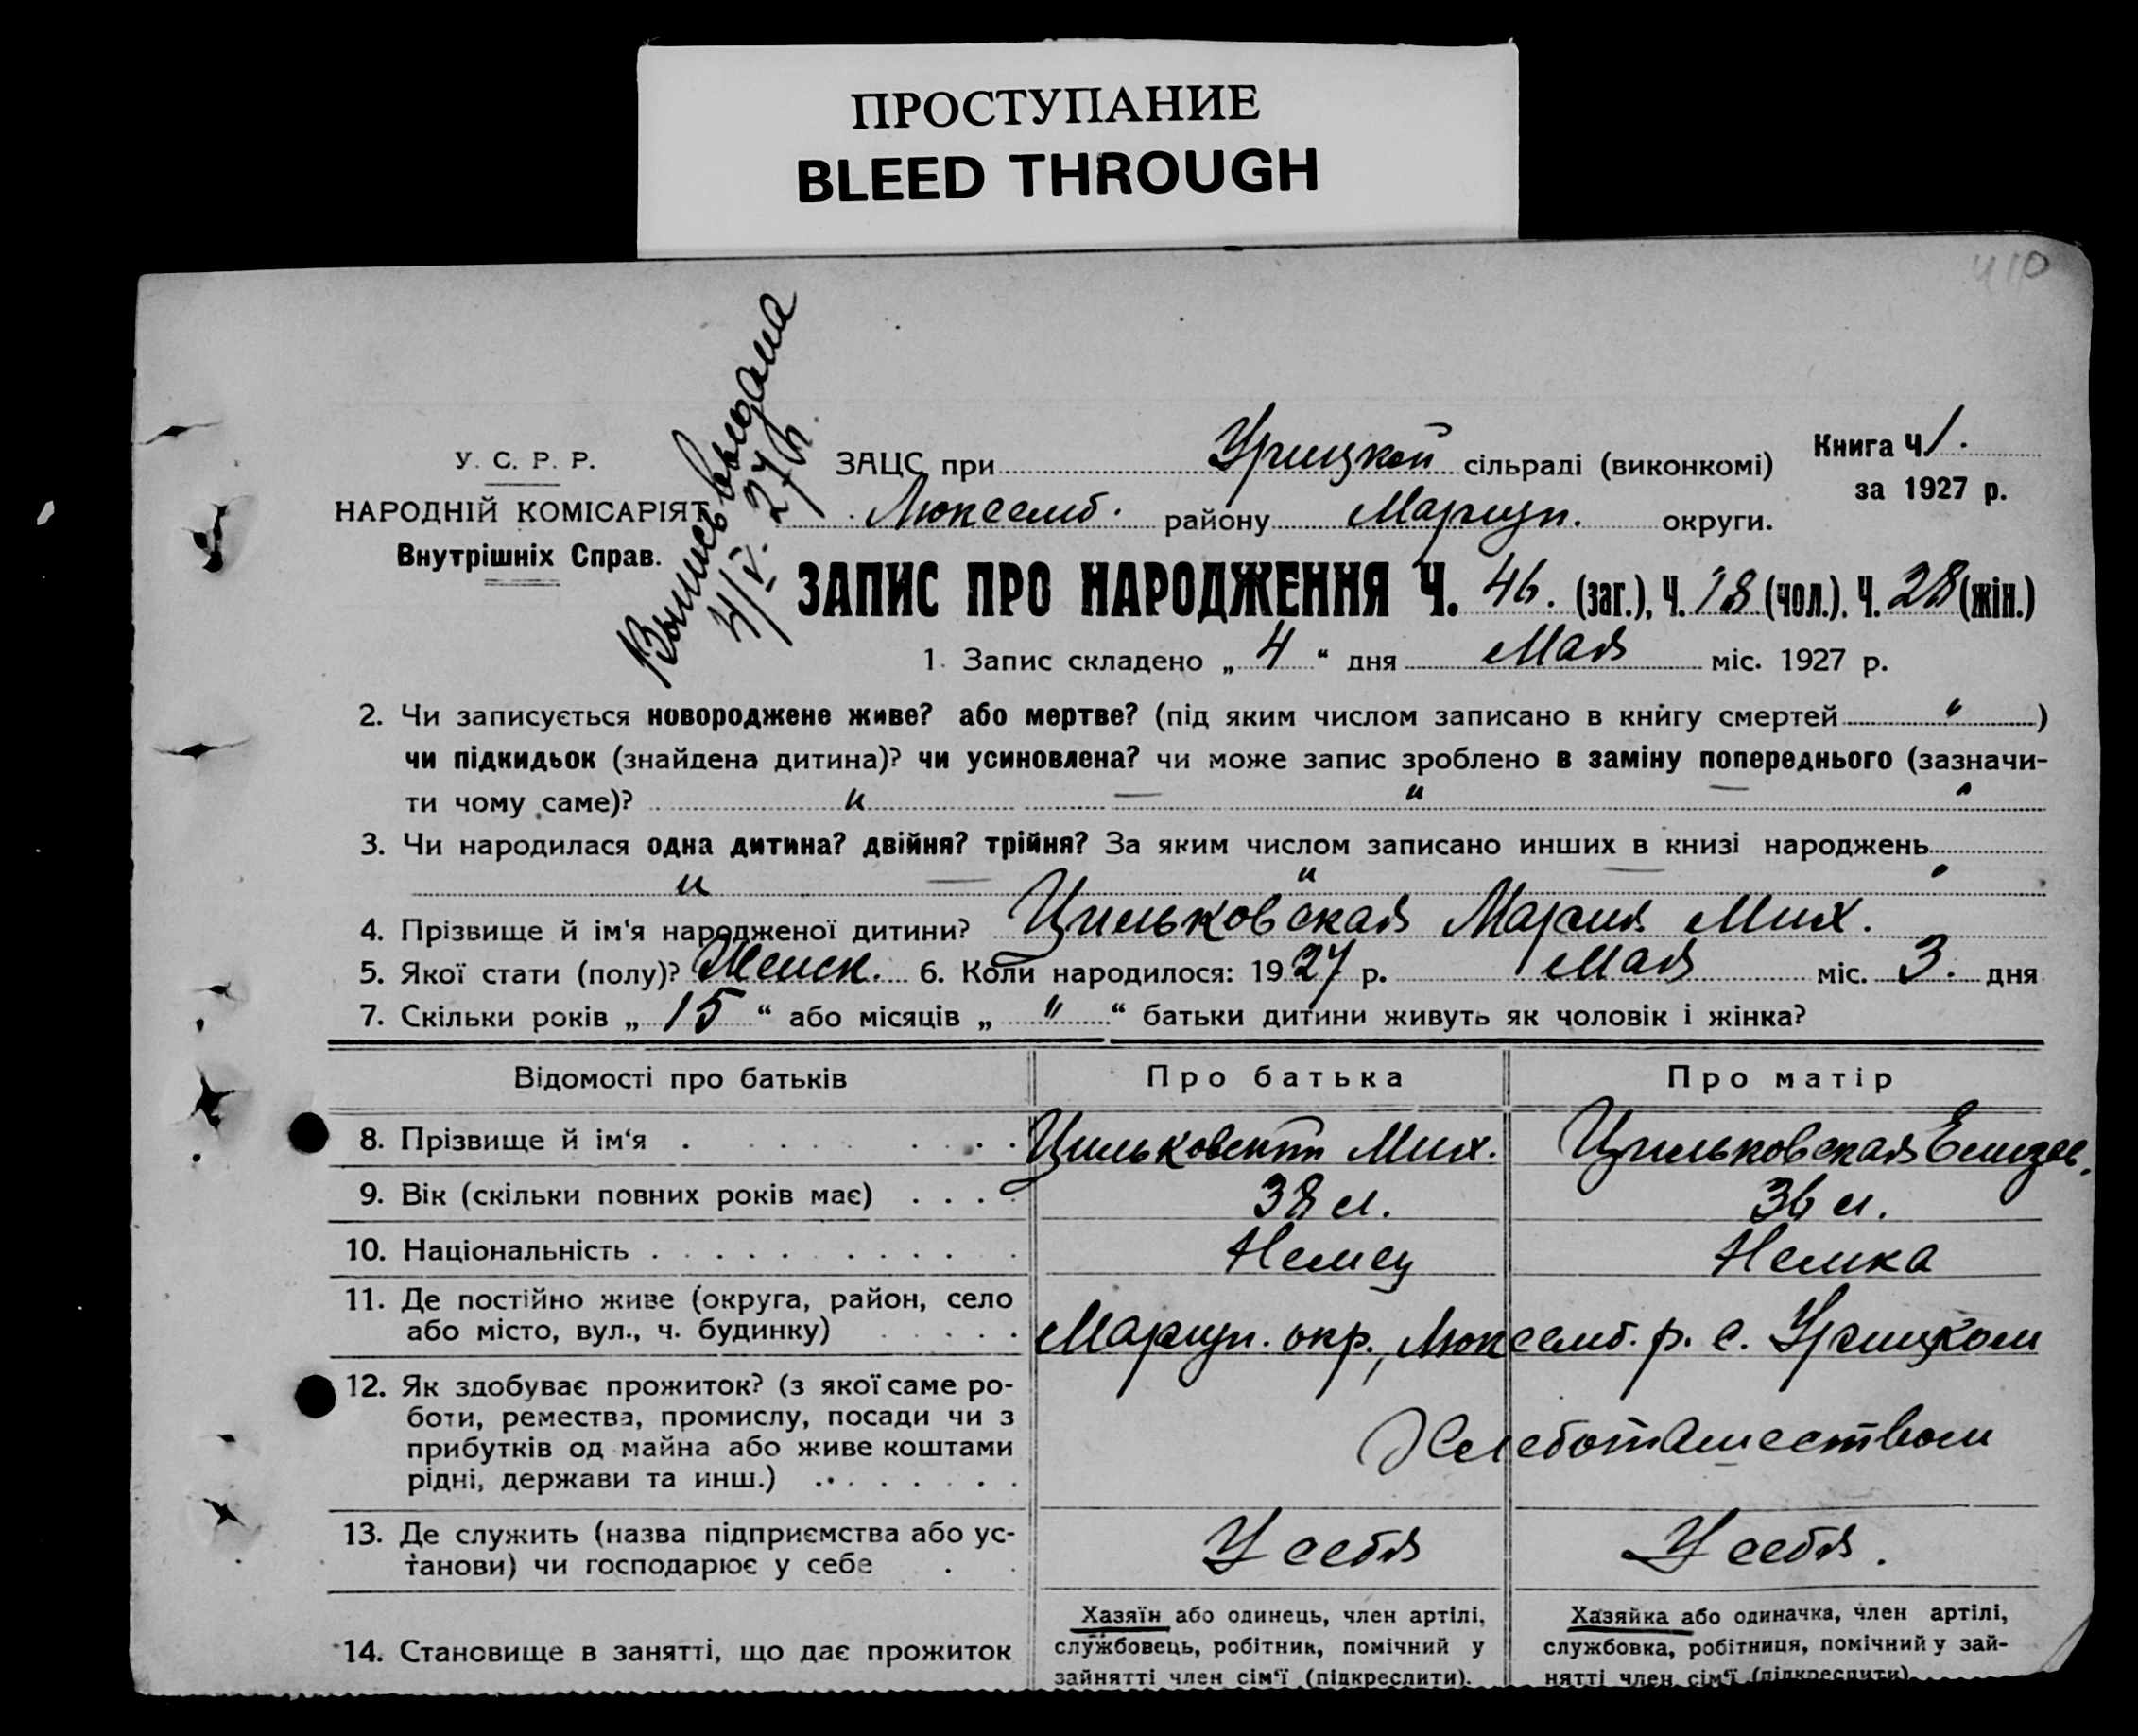 ПРОСТУПАНИЕ
BLEED THROUGH
410
Выпись выдана
4/V. 27 р.
У. С. Р. Р.
НАРОДНІЙ КОМІСАРІЯТ
Внутрішніх Справ.
ЗАЦС при Урицкой сільраді (виконкомі)
Люксемб. району Мариуп. округи.
Книга Ч 1.
за 1927 р.
ЗАПИС ПРО НАРОДЖЕННЯ Ч. 46. (заг.), Ч. 18 (чол.). Ч. 28 (жін.)
1. Запис складено „ 4 “ дня Мая міс. 1927 р.
2. Чи записується новороджене живе? або мертве? (під яким числом записано в книгу смертей " )
чи підкидьок (знайдена дитина)? чи усиновлена? чи може запис зроблено в заміну попереднього (зазначи-
ти чому саме)? " — " — "
3. Чи народилася одна дитина? двійня? трійня? За яким числом записано инших в книзі народжень
" — " — "
4. Прізвище й ім‘я народженої дитини? Цильковская Мария Мих.
5. Якої стати (полу)? Женск. 6. Коли народилося: 1927 р. Мая міс. 3. дня
7. Скільки років „ 15 “ або місяців „ " “ батьки дитини живуть як чоловік і жінка?
Відомості про батьків Про батька Про матір
8. Прізвище й ім‘я Цильковский Мих. Цильковская Елизав.
9. Вік (скільки повних років має) 38 л. 36 л.
10. Національність Немец Немка
11. Де постійно живе (округа, район, село
або місто, вул., ч. будинку) Мариуп. окр., Люксемб. р. с. Урицком
12. Як здобуває прожиток? (з якої саме ро-
боти, ремества, промислу, посади чи з
прибутків од майна або живе коштами
рідні, держави та инш.)
Хлебопашеством
13. Де служить (назва підприємства або ус-
танови) чи господарює у себе У себя У себя.
14. Становище в занятті, що дає прожиток
Хазяїн або одинець, член артілі,
службовець, робітник, помічний у
зайнятті член сім‘ї (підкреслити).
Хазяйка або одиначка, член артілі,
службовка, робітниця, помічний у зай-
нятті член сім‘ї (підкреслити)